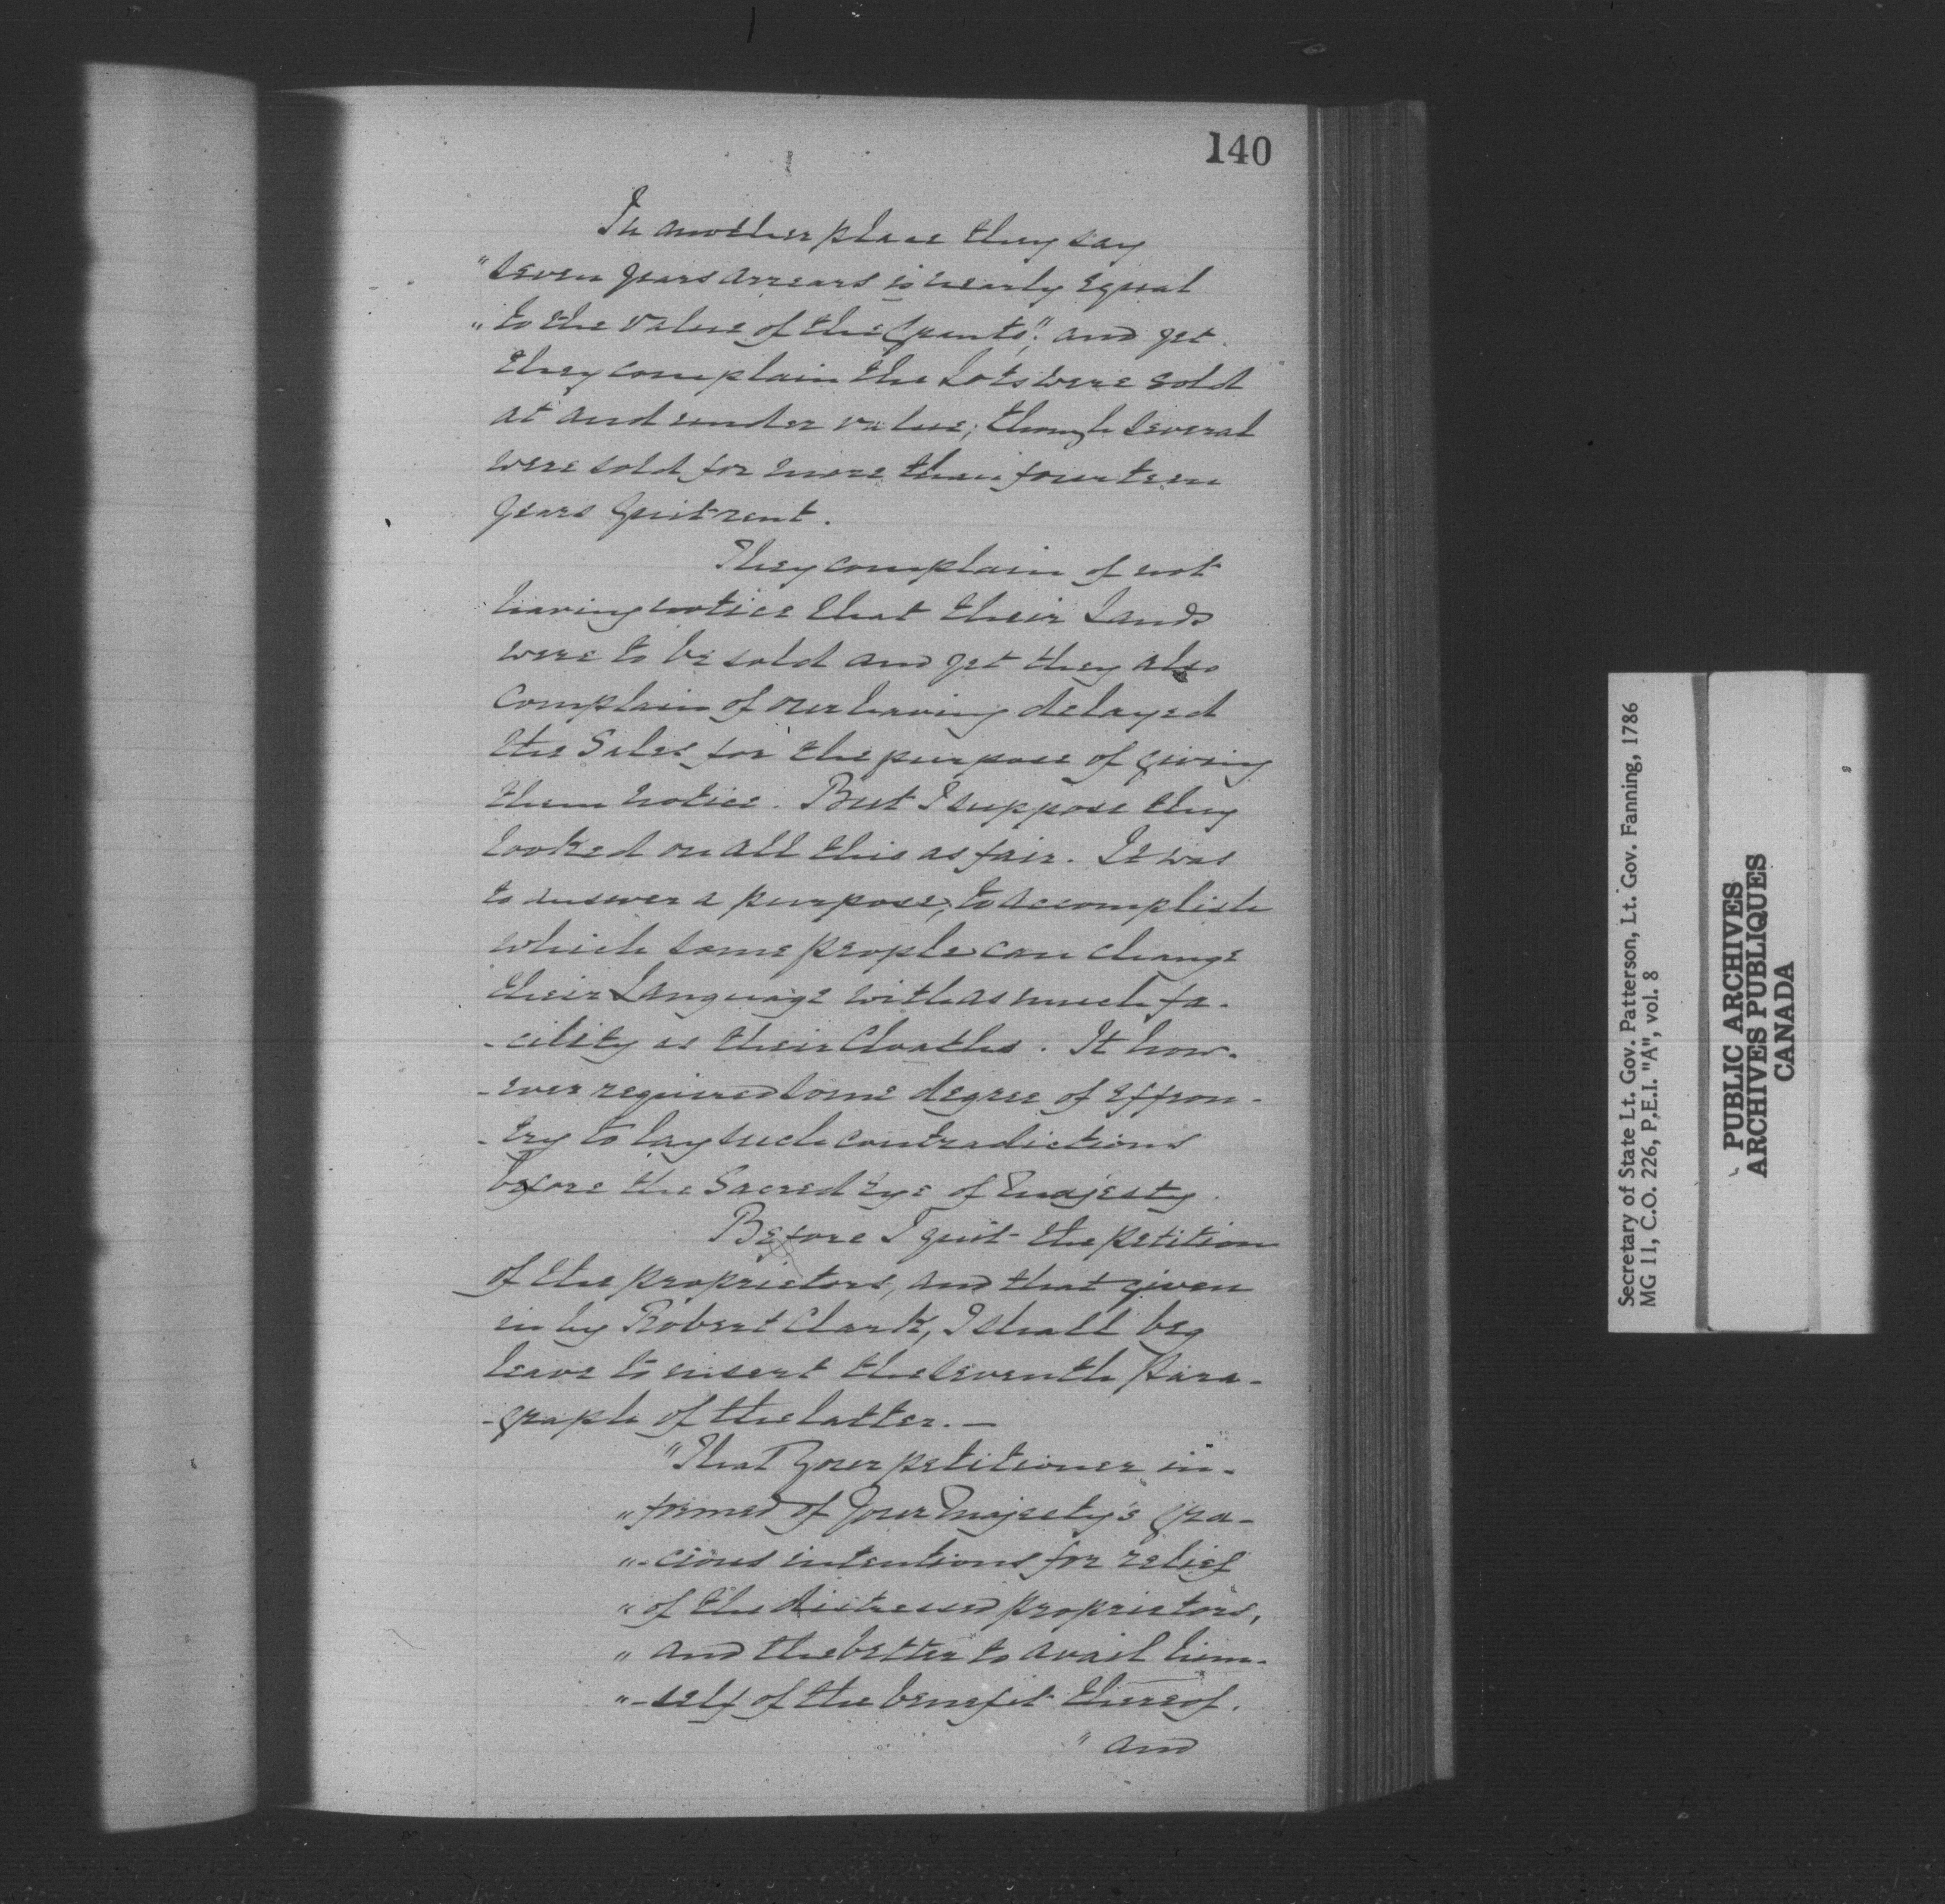 140
In another place they say
"Seven years arrears is nearly equal
"to the value of the Grants", and yet
they complain the Lots were sold
at and under value; though several
were sold for more than fourteen
years Quit rent.
They complain of not
having notice that their Lands
were to be sold and yet they also
complain of our having delayed
the Sales for the purpose of giving
them notice. But I suppose they
looked on all this as fair. It was
to answer a purpose, to accomplish
which some people can change
their Language with as much fa-
-cility as their Cloaths. It how-
-ever required some degree of effron-
-try to lay such contradictions
before the Sacred Eye of Majesty.
Before I quit the petition
of the proprietors, and that given
in by Robert Clark, I shall beg
leave to insert the seventh Para-
-graph of the latter. —
"That Your petitioner in-
"formed of Your Majesty's gra-
"-cious intentions for relief
"of the distressed proprietors,
"and the better to avail him-
"-self of the benefit thereof.
"and
Secretary of State Lt. Gov. Patterson, Lt. Gov. Fanning, 1786
MG 11, C.O. 226, P.E.I. "A", vol. 8
PUBLIC ARCHIVES
ARCHIVES PUBLIQUES
CANADA